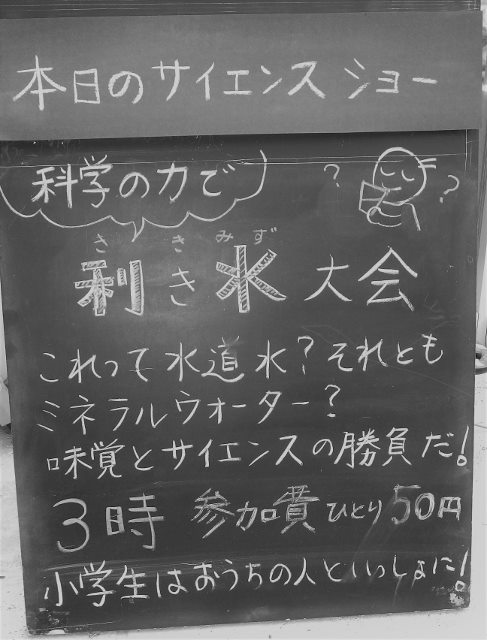 本日のサイエンスショー
科学の力で
? ?
さ き み ず
利き水 大会
これって水道水?それとも
ミネラルウォーター?
味覚とサイエンスの勝負だ!
3時 参加費ひとり50円
小学生はおうちの人といっしょに!